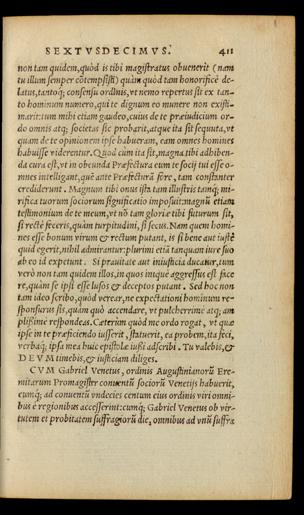 SEXTVSDECIMVS. 411
non tam quidem, quòd is tibi magistratus obuenerit (nam
tu illum semper cõtempsisti) quàm quòd tam honorificè de-
latus, tantoq́; consensu ordinis, vt nemo repertus sit ex tan-
to hominum numero, qui te dignum eo munere non existi-
marit: tum mihi etiam gaudeo, cuius de te præiudicium or-
do omnis atq; societas sic probarit, atque ita sit sequuta, vt
quam de te opinionem ipse habueram, eam omnes homines
habuisse viderentur. Quod cùm ita sit, magna tibi adhiben-
da cura est, vt in obeunda Præfectura eum te socij tui esse o-
mnes intelligant, què ante Præfecturã fore, tam constanter
crediderunt. Magnum tibi onus ista tam illustris tamq́; mi-
rifica tuorum sociorum significatio imposuit: magnũ etiam
testimonium de te meum, vt nõ tam gloriæ tibi futurum sit,
si rectè feceris, quàm turpitudini, si secus. Nam quem homi-
nes esse bonum virum & rectum putant, is si bene aut iustè
quid egerit, nihil admirantur: plurimi etiã tanquam iure suo
ab eo id expetunt. Si prauitate aut iniustitia ducatur, tum
verò non tam quidem illos, in quos inique aggressus est face
re, quàm se ipsi esse lusos & deceptos putant. Sed hoc non
tam ideo scribo, quòd verear, ne expectationi hominum re-
sponsurus sis, quàm quò accendare, vt pulcherrimè atq; am
plissimè respondeas. Cæterùm quòd me ordo rogat, vt quæ
ipse in te præficiendo iusserit, statuerit, ea probem, ita feci,
verbaq́; ipsa mea huic epistolæ iußi adscribi. Tu valebis, &
DEVM timebis, & iustitiam diliges.
CVM Gabriel Venetus, ordinis Augustinianorũ Ere-
mitarum Promagister conuentũ sociorũ Venetijs habuerit,
cumq́; ad conuentũ vndecies centum eius ordinis viri omni-
bus è regionibus accesserint: cumq́; Gabriel Venetus ob vir-
tutem et probitatem suffragiorũ die, omnibus ad vnũ suffra